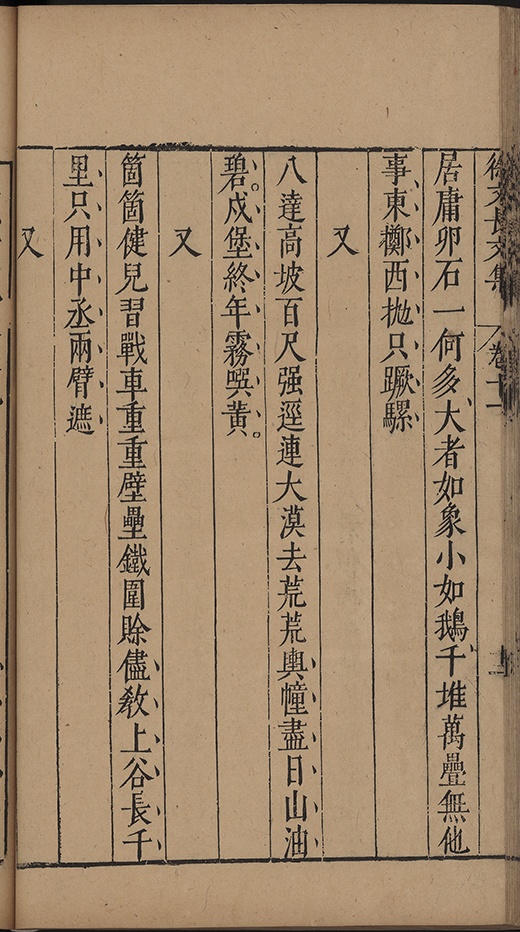 徐文長文集 卷十一
居庸卵石一何多大者如象小如鵝千堆萬疊無他
事東擲西拋只蹶騾
又
八達高坡百尺强逕連大漠去荒荒輿幢盡日山油
碧戍堡終年霧噀黄
又
箇箇健兒習戰車重重壁壘鐵圍賖儘教上谷長千
里只用中丞兩臂遮
又